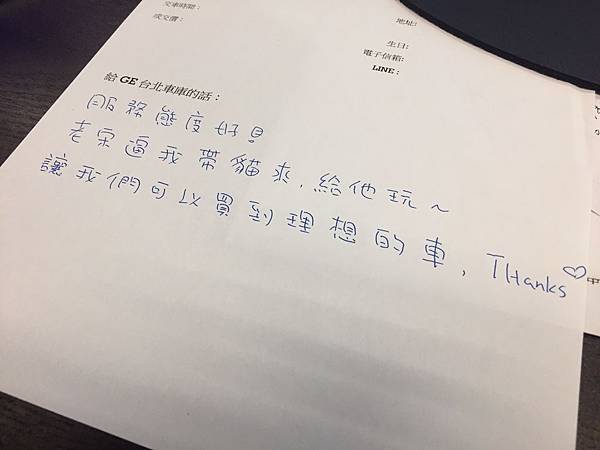 交車時間：
成交價：
地址:
生日:
電子信箱:
LINE：
給 GE 台北車庫的話：
服務態度好！
老宋逼我帶貓來，給他玩～
讓我們可以買到理想的車，THanks♡